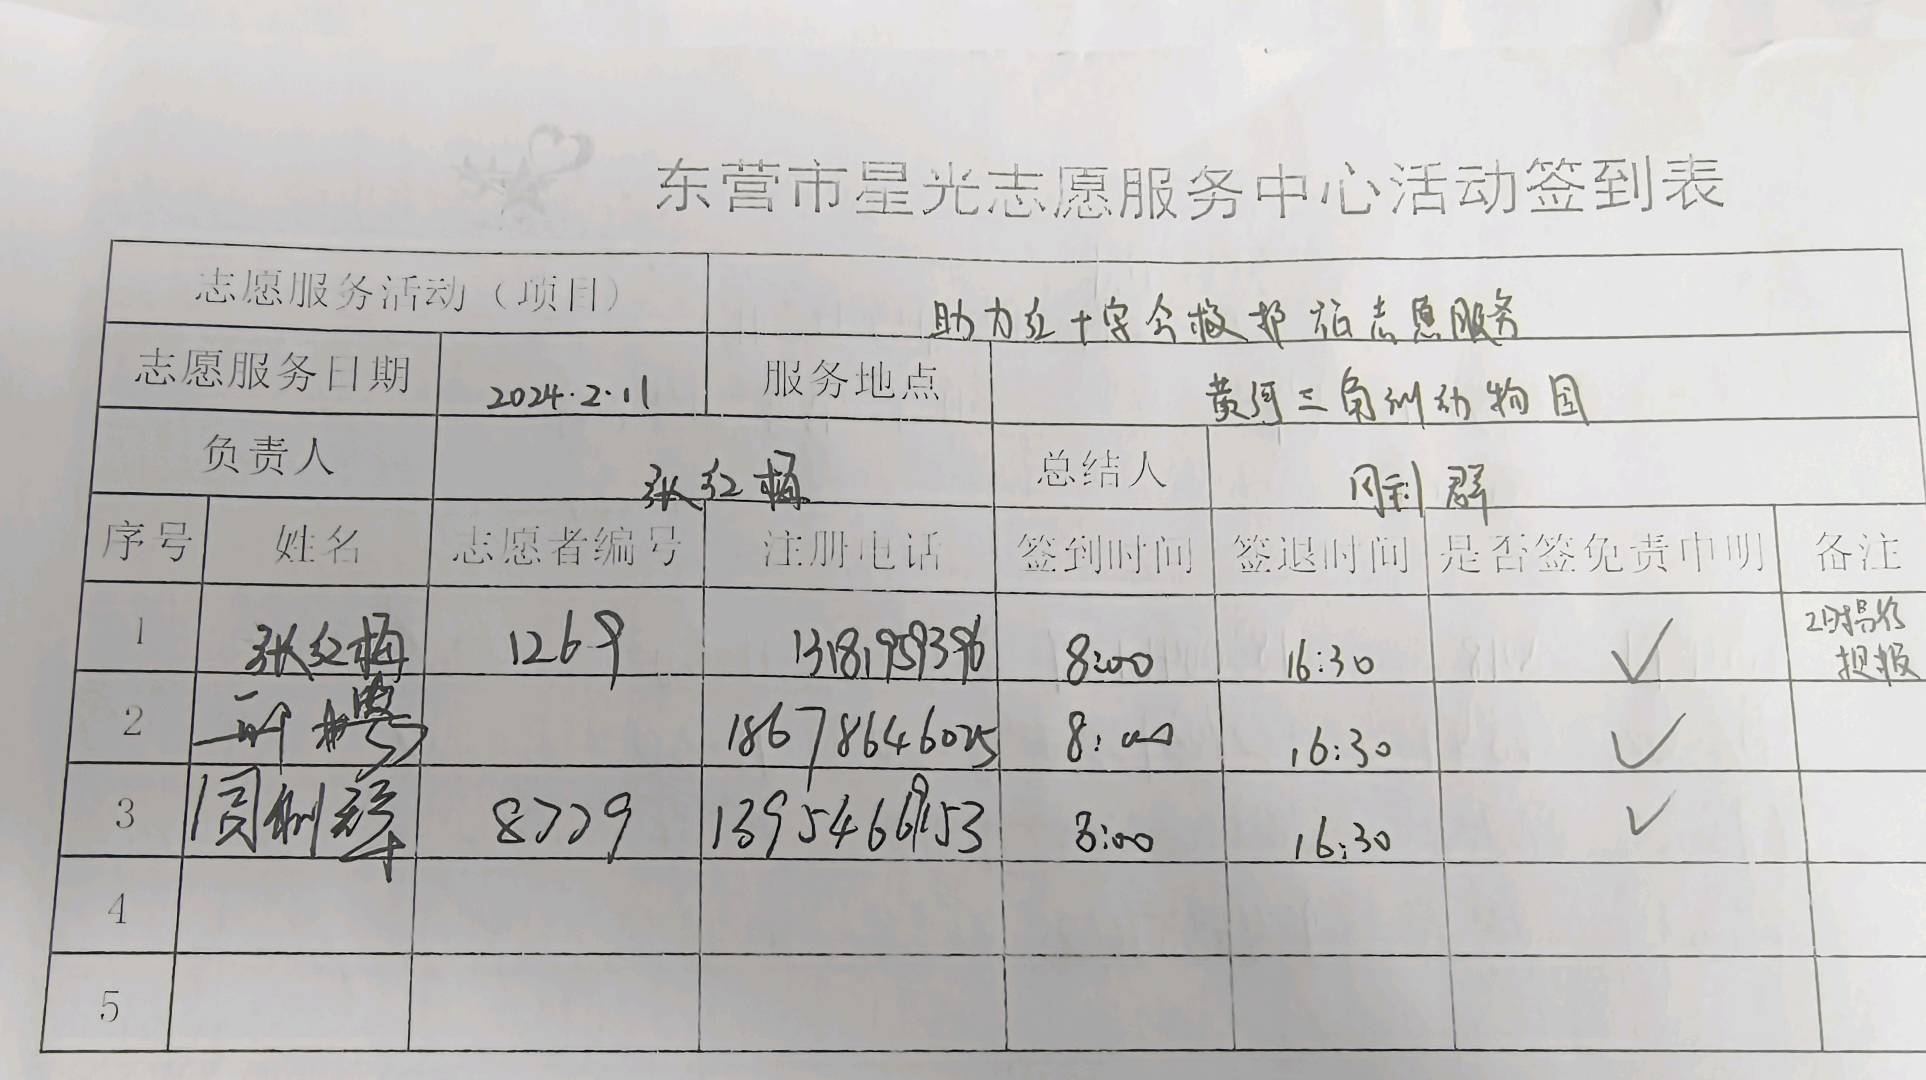 东营市星光志愿服务中心活动签到表
志愿服务活动（项目） 助力红十字会救护站志愿服务
志愿服务日期 2024.2.11 服务地点 黄河三角洲动物园
负责人 张红梅 总结人 周利群
序号 姓名 志愿者编号 注册电话 签到时间 签退时间 是否签免责申明 备注
1 张红梅 1269 13181959396 8:00 16:30 ✓
2 18678646025 8:00 16:30 ✓
3 周利群 8729 8:00 16:30 ✓
4
5